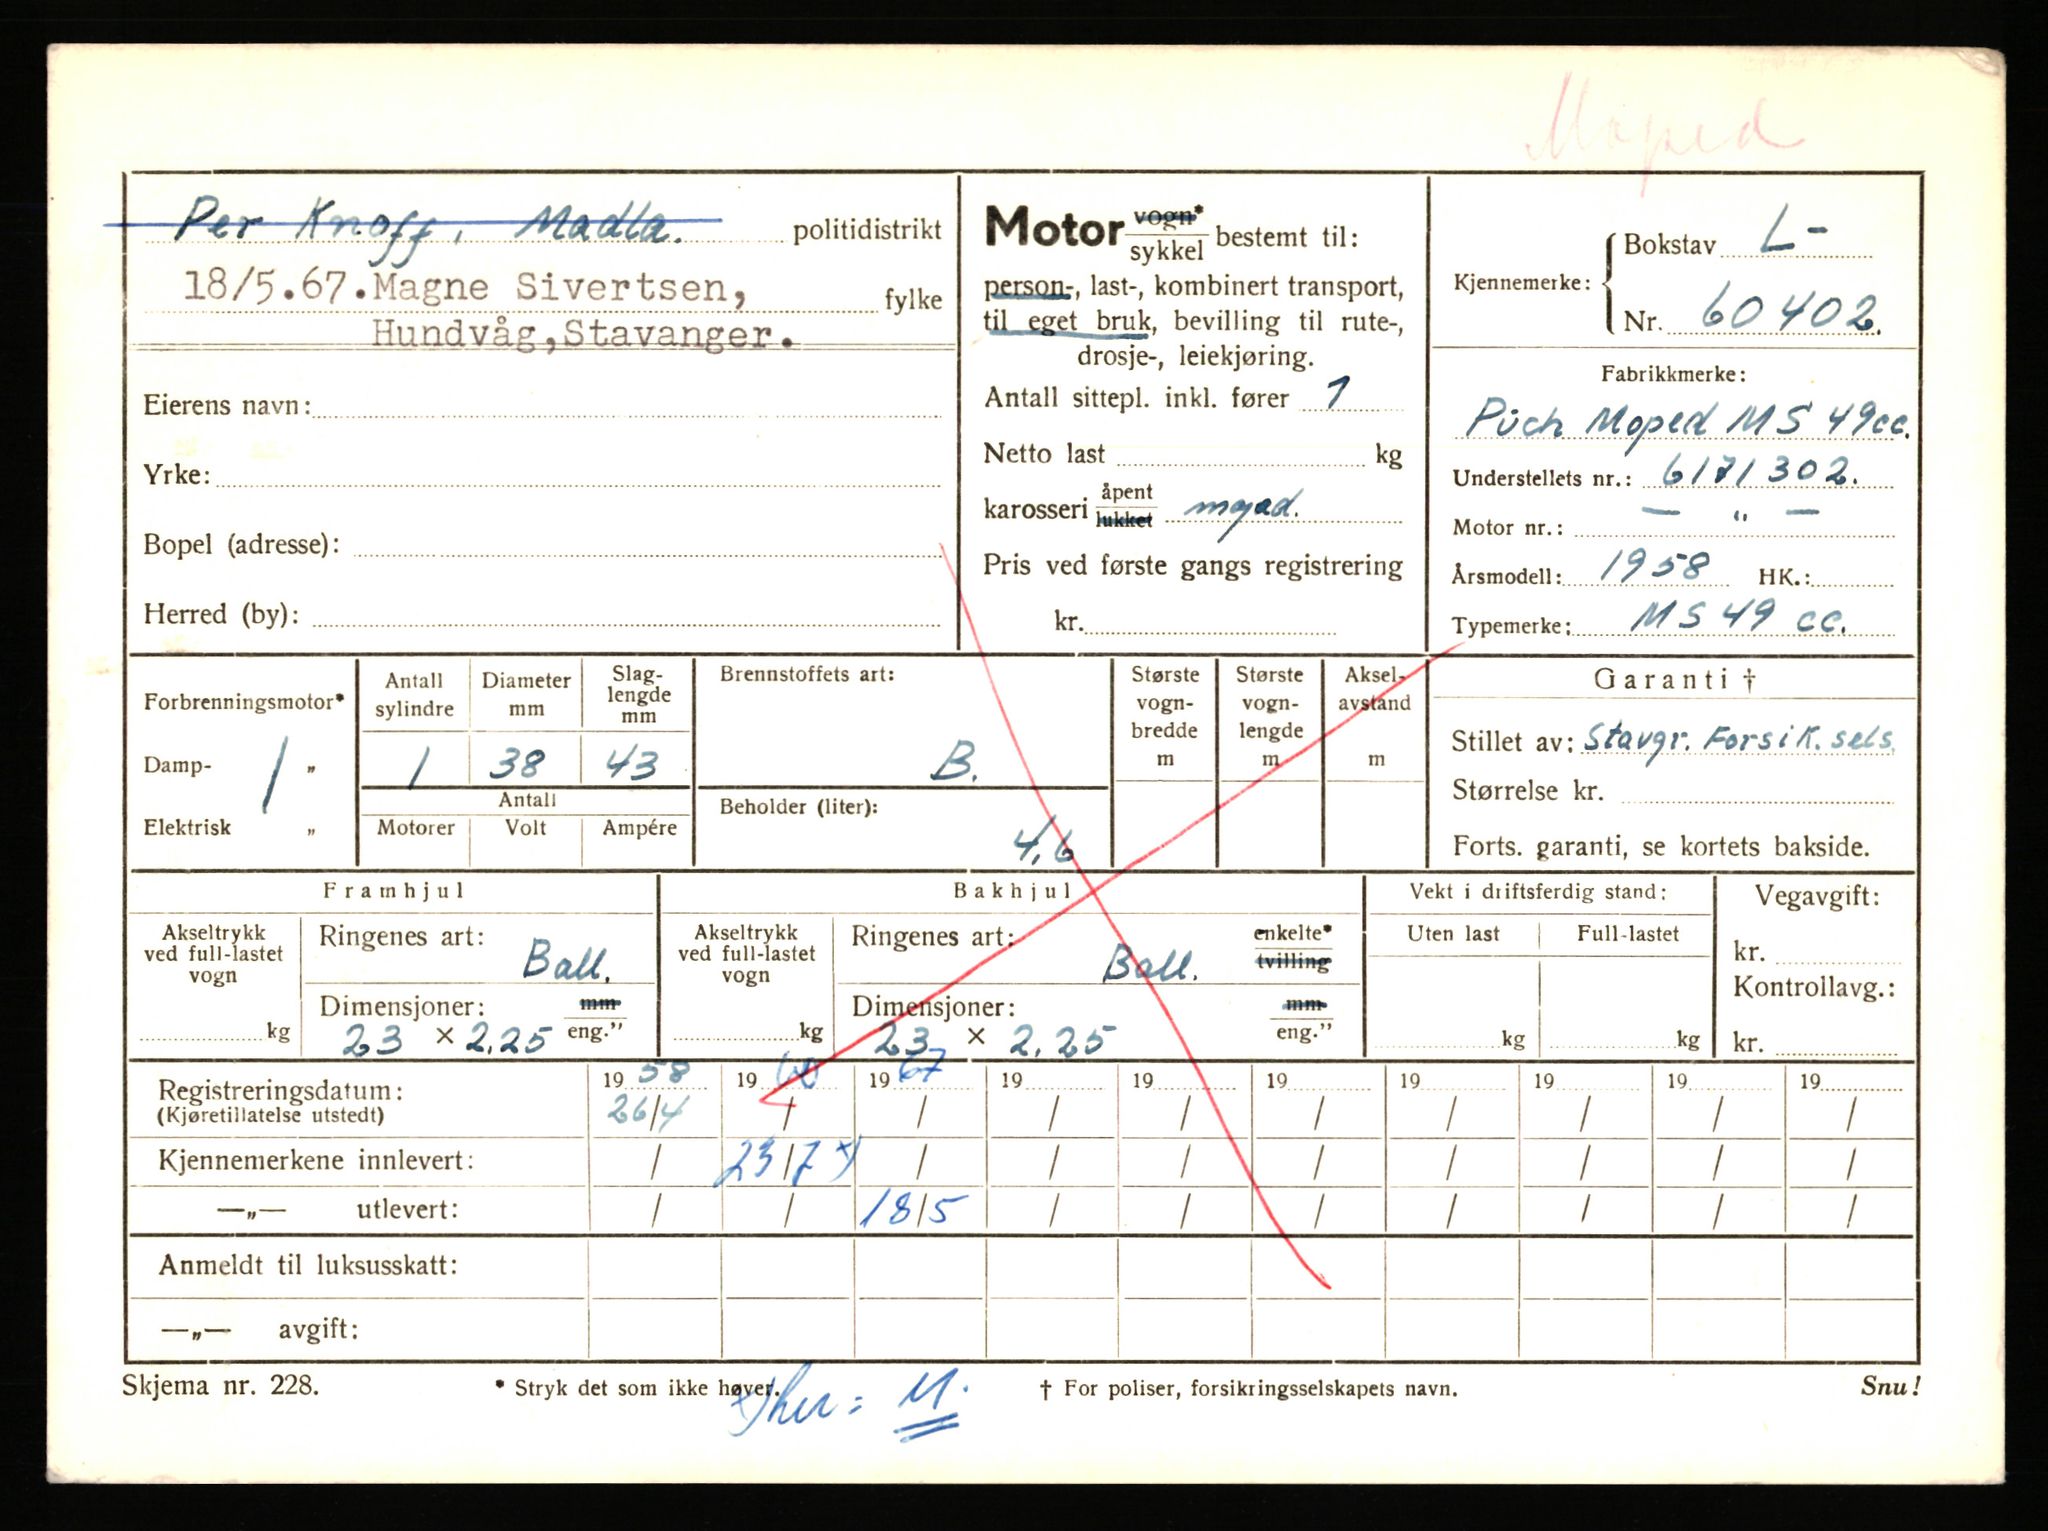 Moped
Per Knoff, Madla. politidistrikt
18/5.67. Magne Sivertsen, fylke
Hundvåg, Stavanger.
Eierens navn:
Yrke:
Bopel (adresse):
Herred (by):
Motor vogn* / sykkel bestemt til:
person-, last-, kombinert transport,
til eget bruk, bevilling til rute-,
drosje-, leiekjøring.
Antall sittepl. inkl. fører 1
Netto last kg
karosseri åpent / lukket
Pris ved første gangs registrering
kr.
Kjennemerke: Bokstav L-
Nr. 60402.
Fabrikkmerke:
Püch Moped MS 49cc.
Understellets nr.: 6171302.
Motor nr.: — " —
Årsmodell: 1958 HK.:
Typemerke: MS 49 cc.
Forbrenningsmotor*
Damp- "
Elektrisk "
/
Antall sylindre 1
Diameter mm 38
Slag-lengde mm 43
Antall
Motorer Volt Ampére
Brennstoffets art:
B.
Beholder (liter):
4,6
Største vogn-bredde m
Største vogn-lengde m
Aksel-avstand m
Garanti †
Stillet av: Stavgr. Forsik. sels.
Størrelse kr.
Forts. garanti, se kortets bakside.
Framhjul
Akseltrykk ved full-lastet vogn
kg
Ringenes art:
Ball.
Dimensjoner: mm / eng."
23 × 2,25
Bakhjul
Akseltrykk ved full-lastet vogn
kg
Ringenes art: enkelte* / tvilling
Ball.
Dimensjoner: mm / eng."
23 × 2,25
Vekt i driftsferdig stand:
Uten last Full-lastet
kg kg
Vegavgift:
kr.
Kontrollavg.:
kr.
Registreringsdatum: 19 58 19 60 19 67 19 19 19 19 19 19 19
(Kjøretillatelse utstedt) 26/4 / / / / / / / / /
Kjennemerkene innlevert: / 23/7 x) / / / / / / / /
—„— utlevert: / / 18/5 / / / / / / /
Anmeldt til luksusskatt:
—„— avgift:
Skjema nr. 228. * Stryk det som ikke høver. † For poliser, forsikringsselskapets navn. Snu!
x) = M.